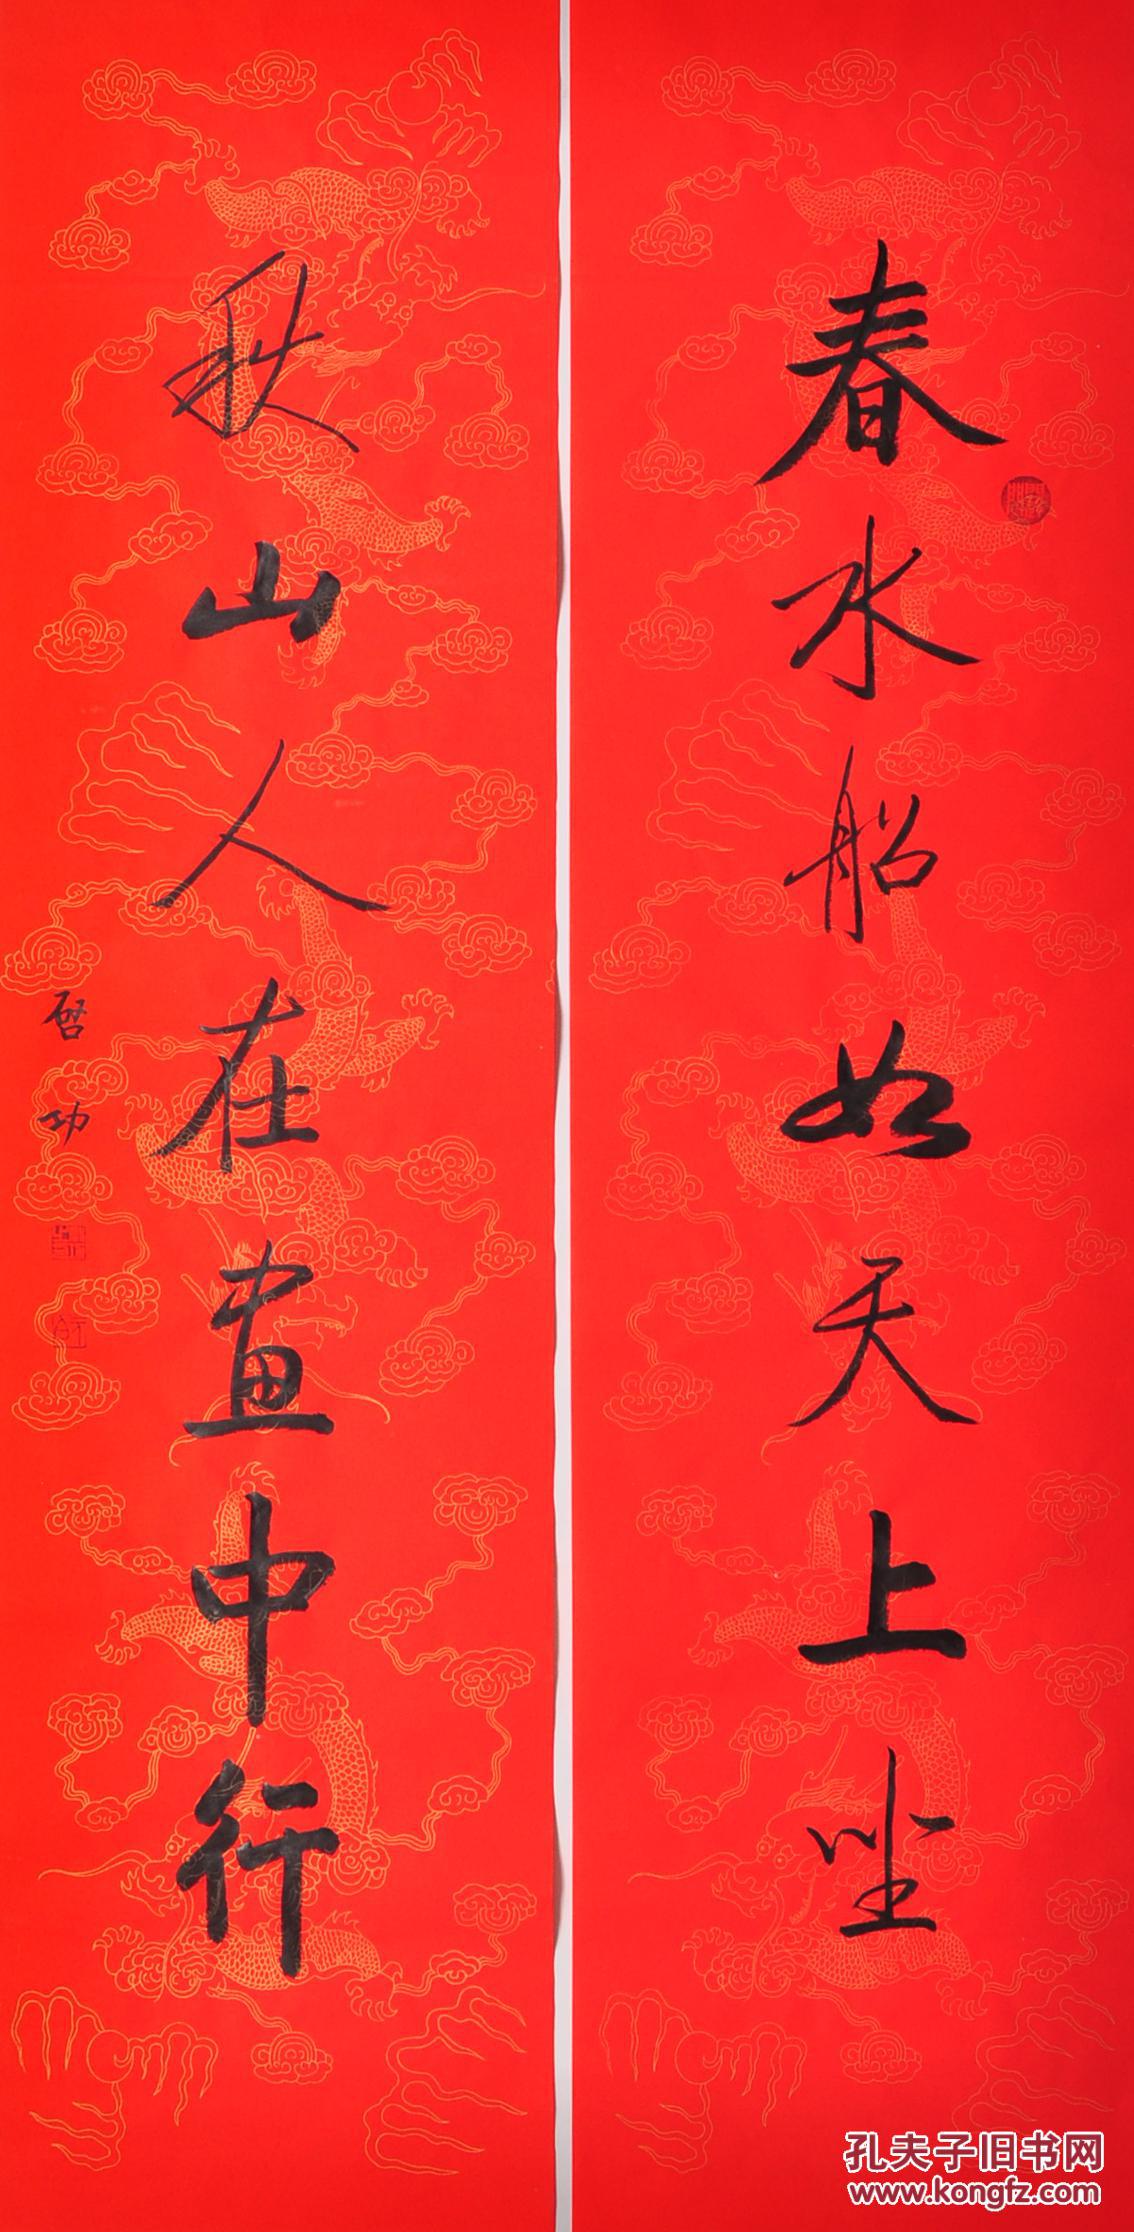 春水船如天上坐
秋山人在画中行
启功
孔夫子旧书网
www.kongfz.com